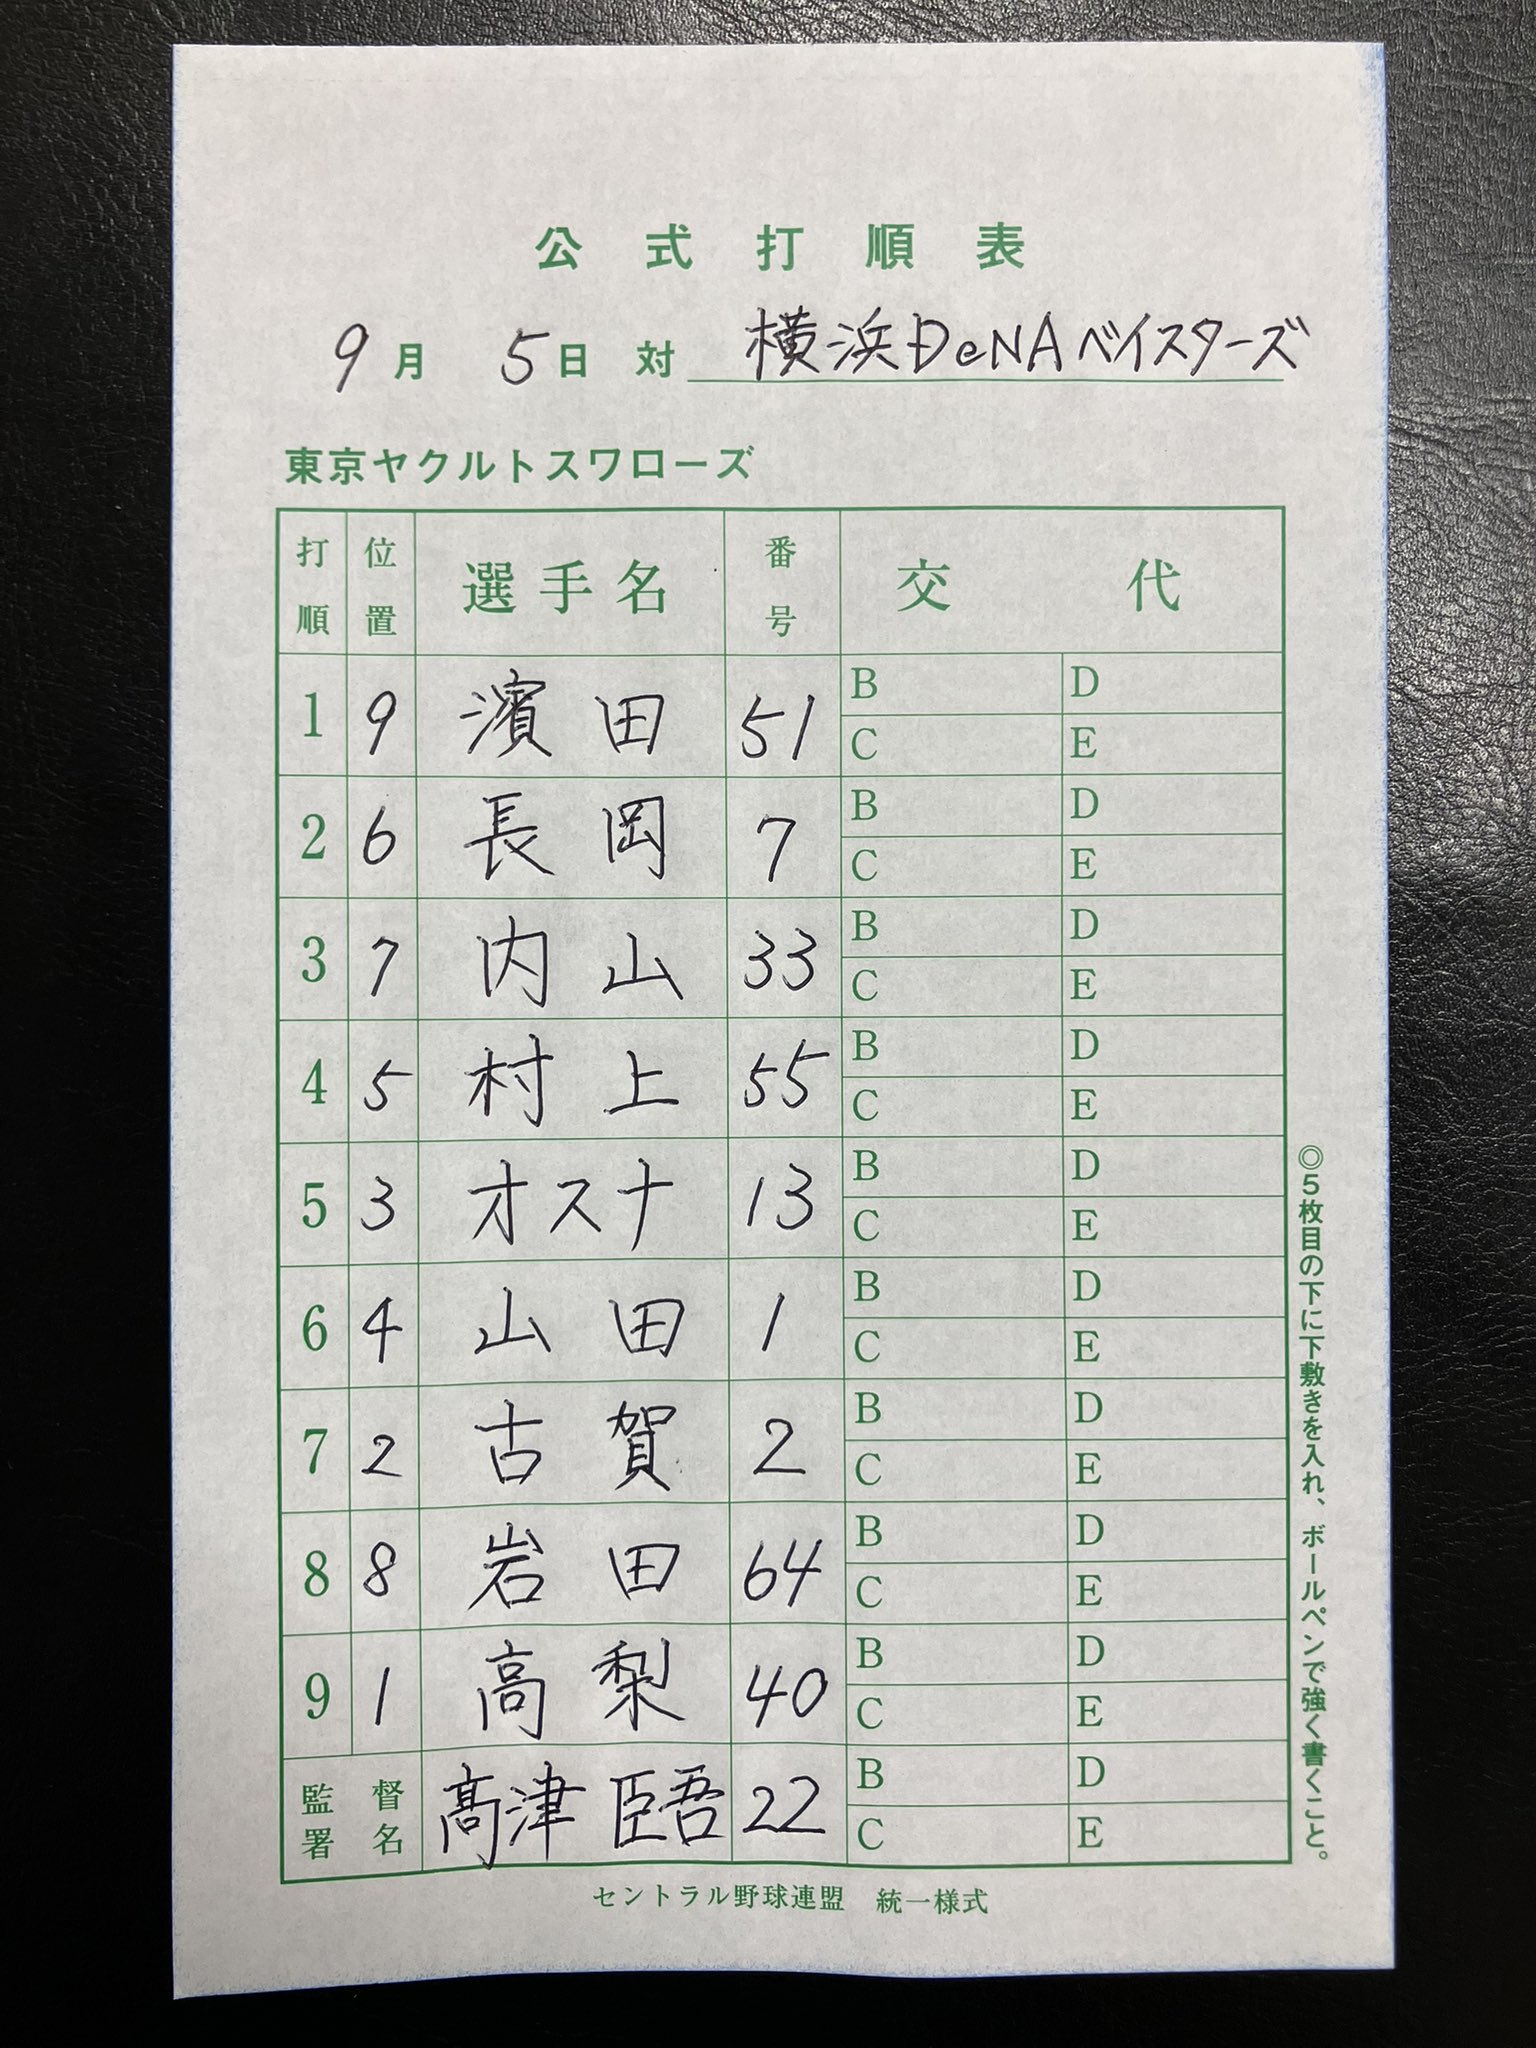 公式打順表
9月 5日 対 横浜DeNAベイスターズ
東京ヤクルトスワローズ
打順 位置 選手名 番号 交代
1 9 濱田 51 B D
C E
2 6 長岡 7 B D
C E
3 7 内山 33 B D
C E
4 5 村上 55 B D
C E
5 3 オスナ 13 B D
C E
6 4 山田 1 B D
C E
7 2 古賀 2 B D
C E
8 8 岩田 64 B D
C E
9 1 高梨 40 B D
C E
監督署名 髙津臣吾 22 B D
C E
セントラル野球連盟 統一様式
◎5枚目の下に下敷きを入れ、ボールペンで強く書くこと。